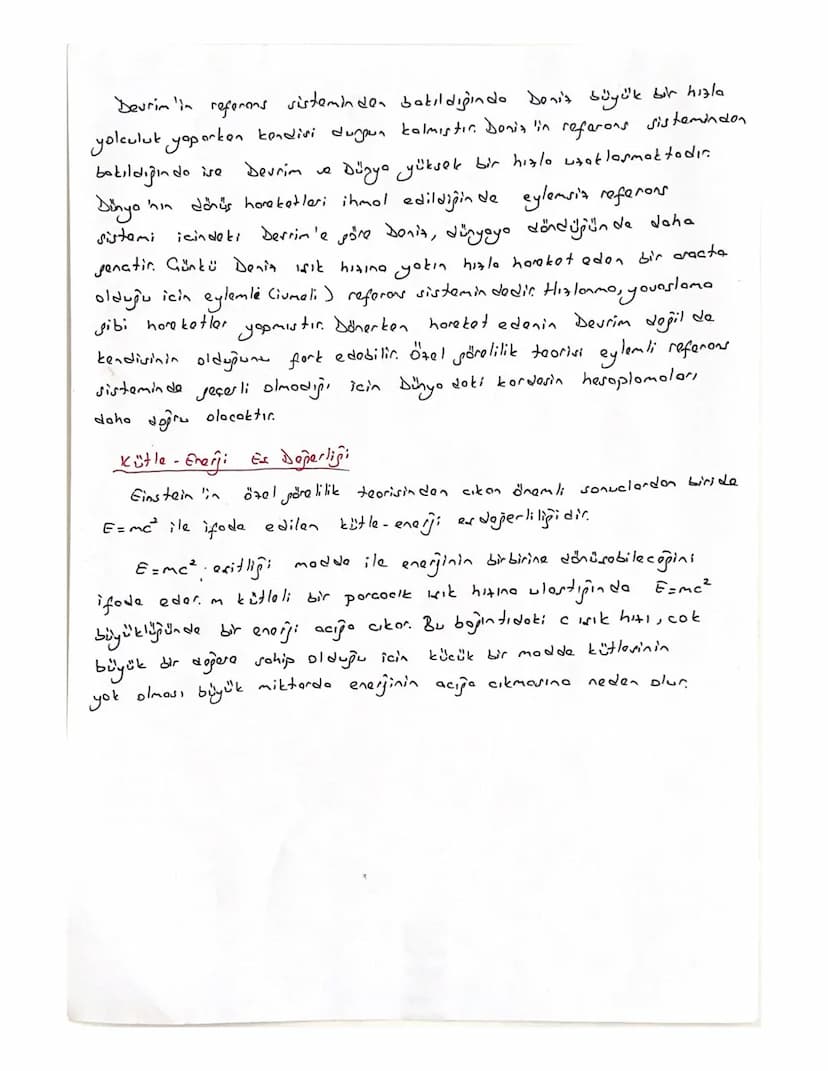 Devrim'in referans sisteminden bakıldığında Deniz büyük bir hızla
yolculuk yaparken kendisi durgun kalmıştır. Deniz'in referans sisteminden
bakıldığında ise Devrim ve Dünya yüksek bir hızla uzaklaşmaktadır.
Dünya'nın dönüş hareketleri ihmal edildiğinde eylemsiz referans
sistemi içindeki Devrim'e göre Deniz, dünyaya döndüğünde daha
gençtir. Çünkü Deniz ışık hızına yakın hızla hareket eden bir araçta
olduğu için eylemle (ivmeli) referans sistemindedir. Hızlanma, yavaşlama
gibi hareketler yapmıştır. Dönerken hareket edenin Devrim değil de
kendisinin olduğunu fark edebilir. Özel görelilik teorisi eylemli referans
sisteminde geçerli olmadığı için Dünya'daki kardeşin hesaplamaları
daha doğru olacaktır.
Kütle - Enerji Eş Değerliği
Einstein'in özel görelilik teorisinden çıkan önemli sonuçlardan biri de
E=mc² ile ifade edilen kütle-enerji eş değerliliğidir.
E=mc² eşitliği madde ile enerjinin birbirine dönüşebileceğini
ifade eder. m kütleli bir parçacık ışık hızına ulaştığında E=mc²
büyüklüğünde bir enerji açığa çıkar. Bu bağıntıdaki c ışık hızı, çok
büyük bir değere sahip olduğu için küçük bir madde kütlesinin
yok olması büyük miktarda enerjinin açığa çıkmasına neden olur.